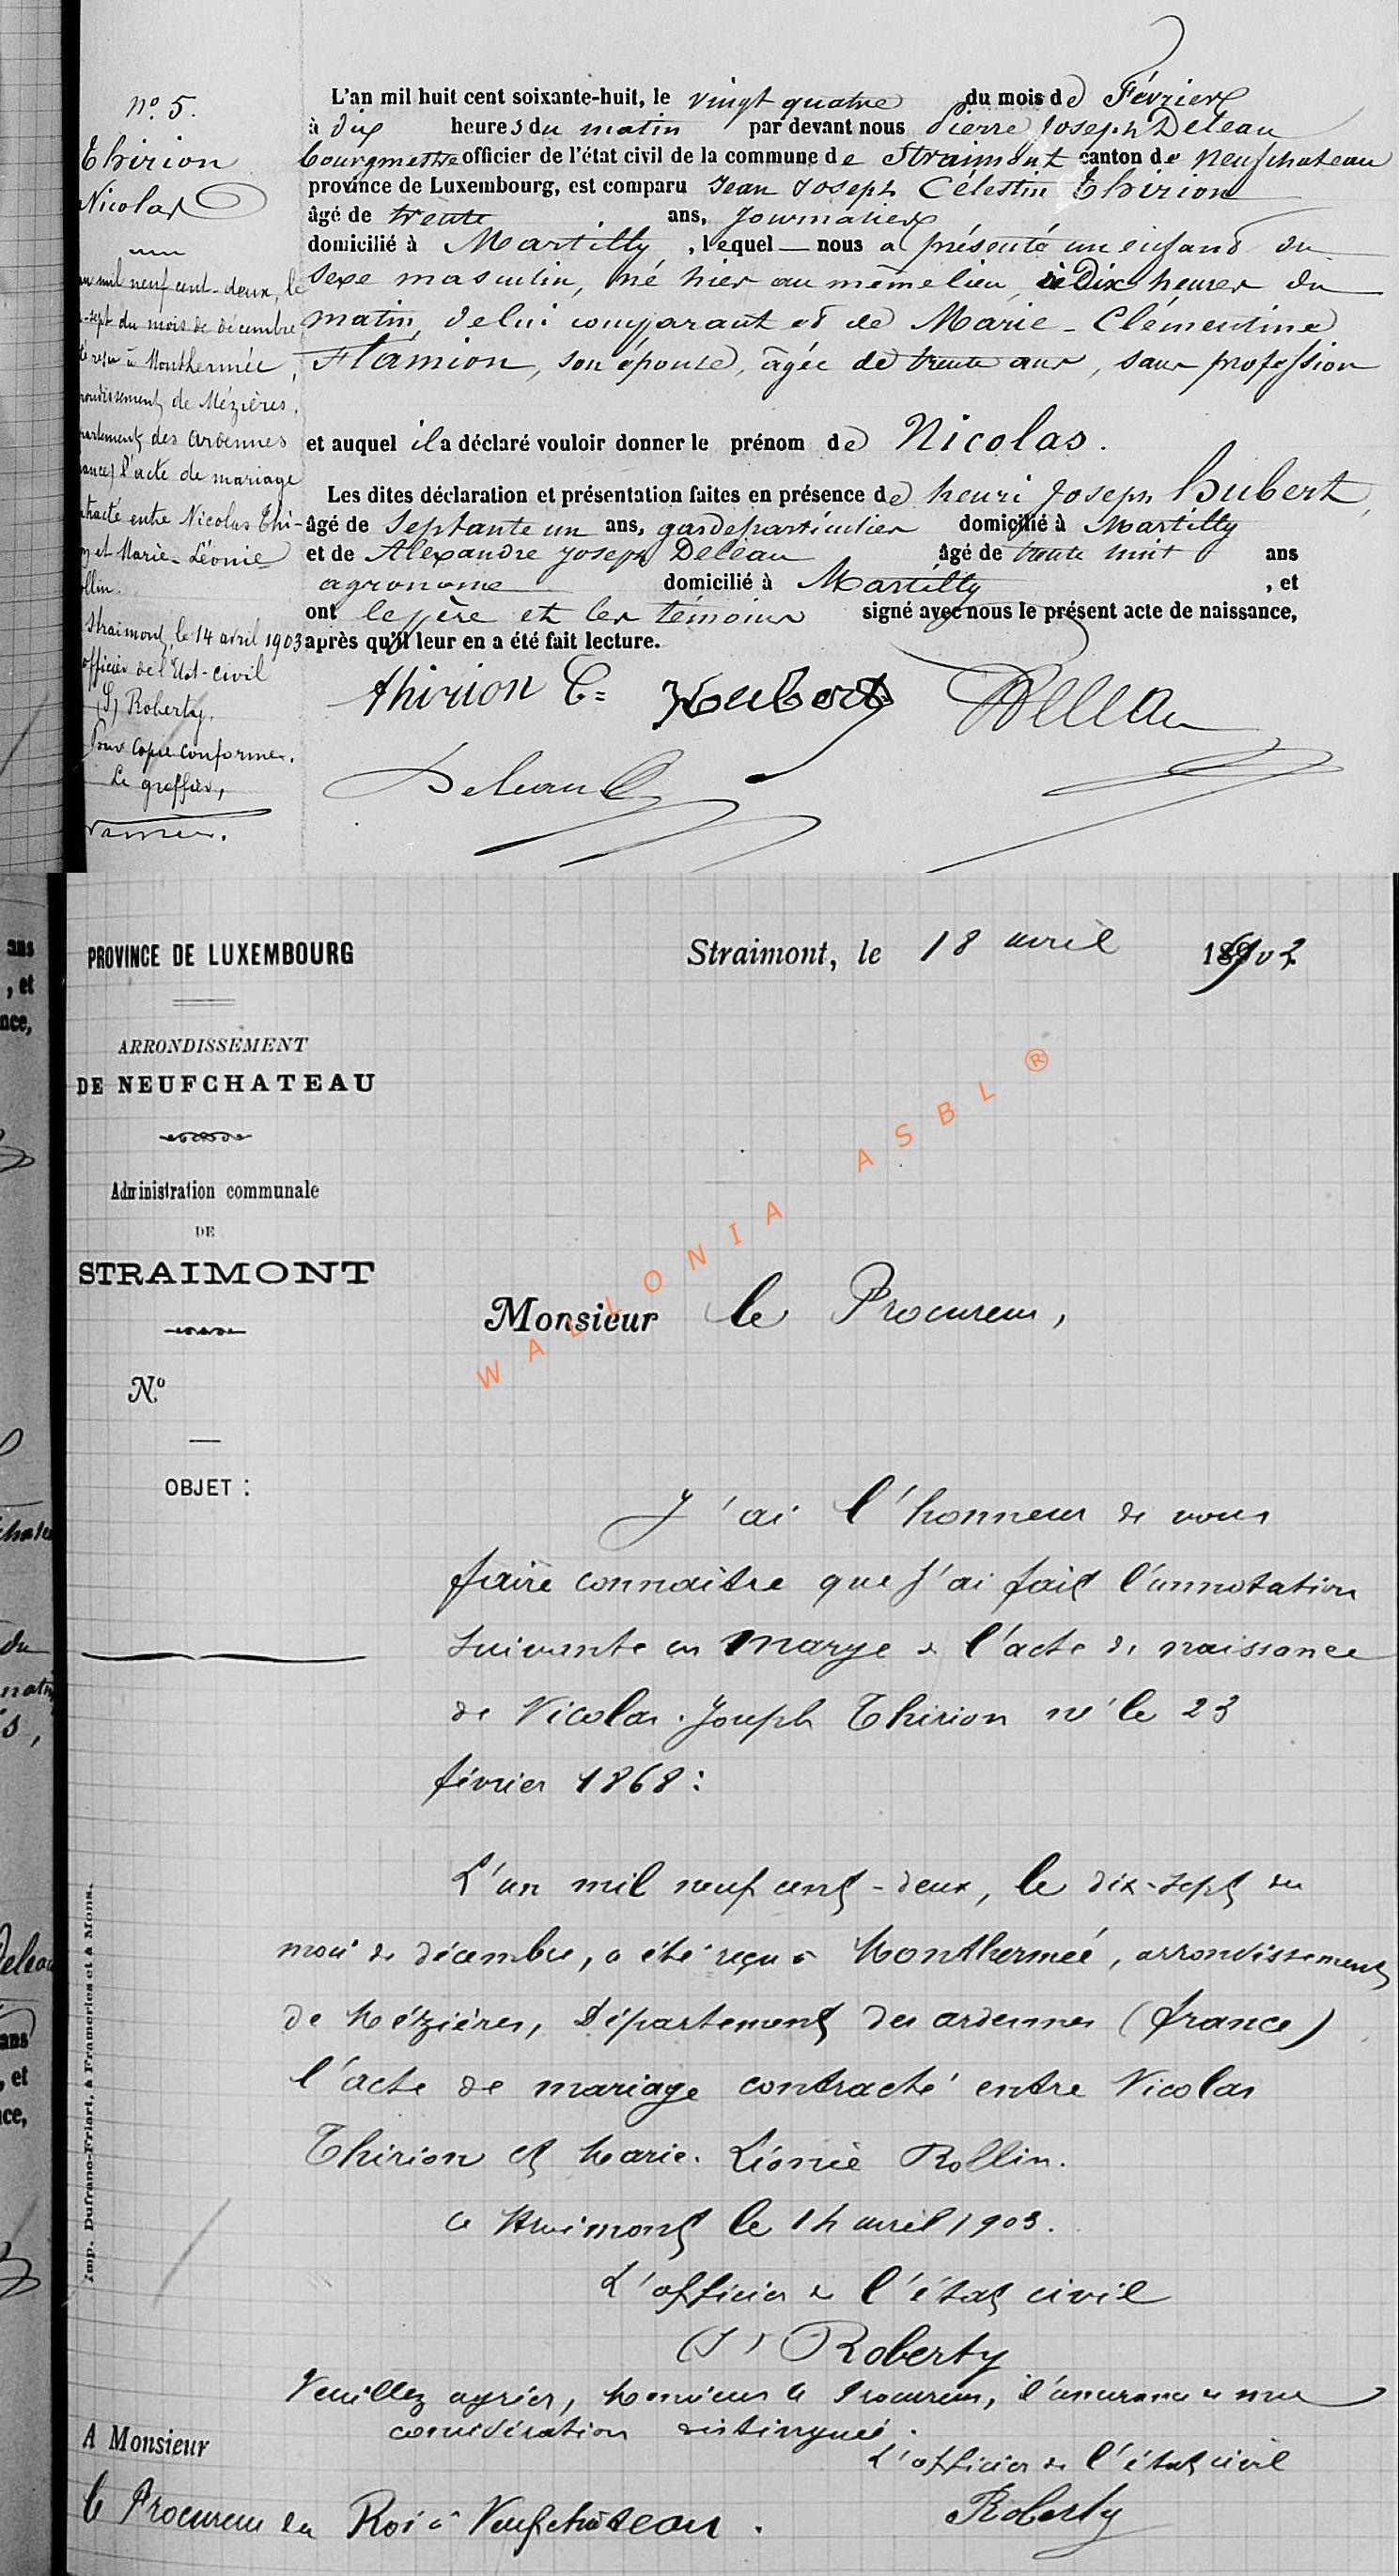 n° 5.
Thirion
Nicolas
mil neuf cent-deux, le
-sept du mois de décembre
reçu à Monthermée,
arrondissement de Mézières,
département des ardennes
l'acte de mariage
contracté entre Nicolas Thi-
et Marie-Léonie
Rollin.
Straimont, le 14 avril 1903
officier de l'Etat-civil
(S) Roberty.
Pour copie conforme.
Le greffier,
L'an mil huit cent soixante-huit, le vingt quatre du mois de Février
à dix heures du matin par devant nous Pierre Joseph Deleau
bourgmestre officier de l'état civil de la commune de Straimont canton de Neufchateau
province de Luxembourg, est comparu Jean Joseph Célestin Thirion
âgé de trente ans, Journalier
domicilié à Martilly, lequel nous a présenté un enfant du
sexe masculin, né hier au même lieu, à Dix heures du
matin, de lui comparant et de Marie-Clémentine
Flamion, son épouse, âgée de trente ans, sans profession
et auquel il a déclaré vouloir donner le prénom de Nicolas.
Les dites déclaration et présentation faites en présence de henri Joseph Hubert,
âgé de Septante un ans, garde particulier domicilié à Martilly
et de Alexandre Joseph Deleau âgé de trente huit ans
agronome domicilié à Martilly, et
ont le père et les témoins signé avec nous le présent acte de naissance,
après qu'il leur en a été fait lecture.
thirion C= Hubert Deleau
Deleau
PROVINCE DE LUXEMBOURG
ARRONDISSEMENT
DE NEUFCHATEAU
Administration communale
DE
STRAIMONT
N°
OBJET :
Straimont, le 18 avril 1903
WALLONIA ASBL ®
Monsieur le Procureur,
J'ai l'honneur de vous
faire connaître que j'ai fait l'annotation
suivante en marge de l'acte de naissance
de Nicolas-Joseph Thirion né le 23
février 1868 :
L'an mil neuf cent-deux, le dix-sept du
mois de décembre, a été reçu à Monthermeé, arrondissement
de Mézières, Département des ardennes (france)
l'acte de mariage contracté entre Nicolas
Thirion et Marie-Léonie Rollin.
a Straimont le 14 avril 1903.
L'officier de l'état civil
(S) Roberty
Veuillez agréer, Monsieur le Procureur, l'assurance de ma
considération distinguée.
L'officier de l'état civil
Roberty
A Monsieur
le Procureur du Roi à Neufchâteau.
Imp. Dufrane-Friart, à Frameries et à Mons.